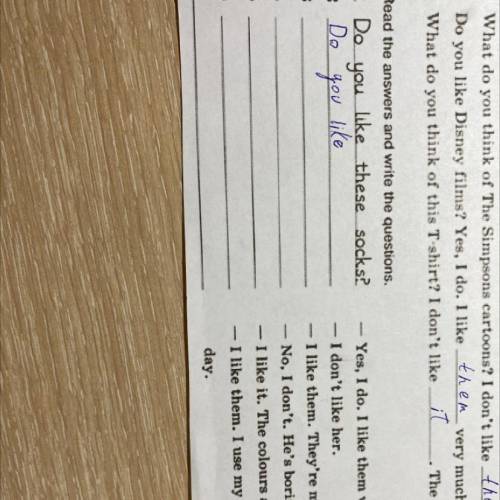 What do you think of The Simpsons cartoons? I don't like
Do you like Disney films? Yes, I do. I like them very much
What do you think of this T-shirt? I don't like it.
Read the answers and write the questions.
Do you like these socks? — Yes, I do. I like them
Do you like — I don't like her.
— I like them. They're
— No, I don't. He's
— I like it. The colours
— I like them. I use my
day.